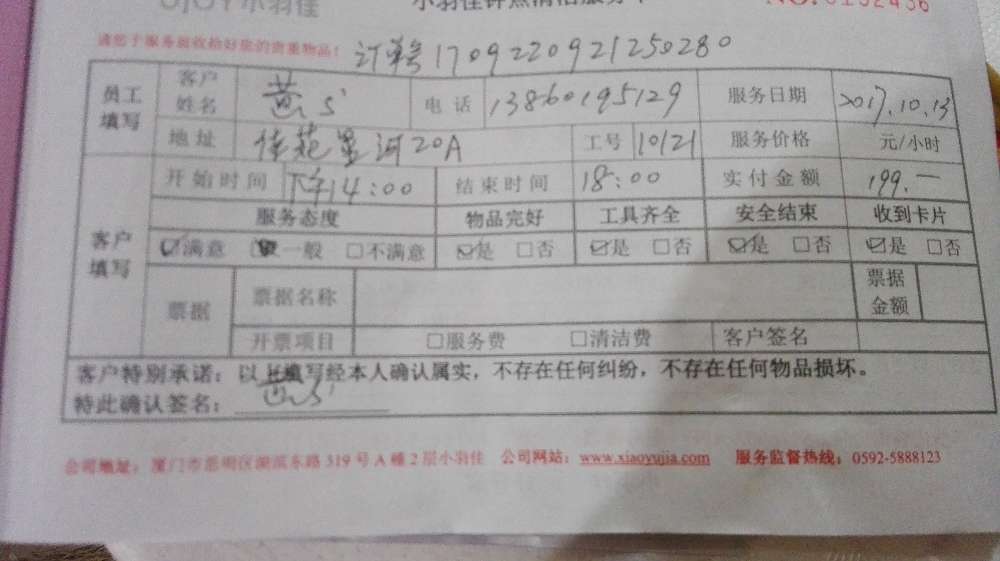 OJOY小羽佳 小羽佳钟点清洁服务单 NO.0132436
请您于服务前收拾好您的贵重物品! 订单号170922092125028​0
员工填写 客户姓名 黄S' 电话 13860195129 服务日期 2017.10.13
地址 20A 工号 10121 服务价格 元/小时
开始时间 下午14:00 结束时间 18:00 实付金额 199.—
客户填写 服务态度 物品完好 工具齐全 安全结束 收到卡片
☑满意 一般 □不满意 ☑是 □否 ☑是 □否 ☑是 □否 ☑是 □否
票据 票据名称 票据金额
开票项目 □服务费 □清洁费 客户签名
客户特别承诺:以上填写经本人确认属实,不存在任何纠纷,不存在任何物品损坏。
特此确认签名: 黄S'
公司地址:厦门市思明区湖滨东路319号A幢2层小羽佳 公司网站:www.xiaoyujia.com 服务监督热线:0592-5888123